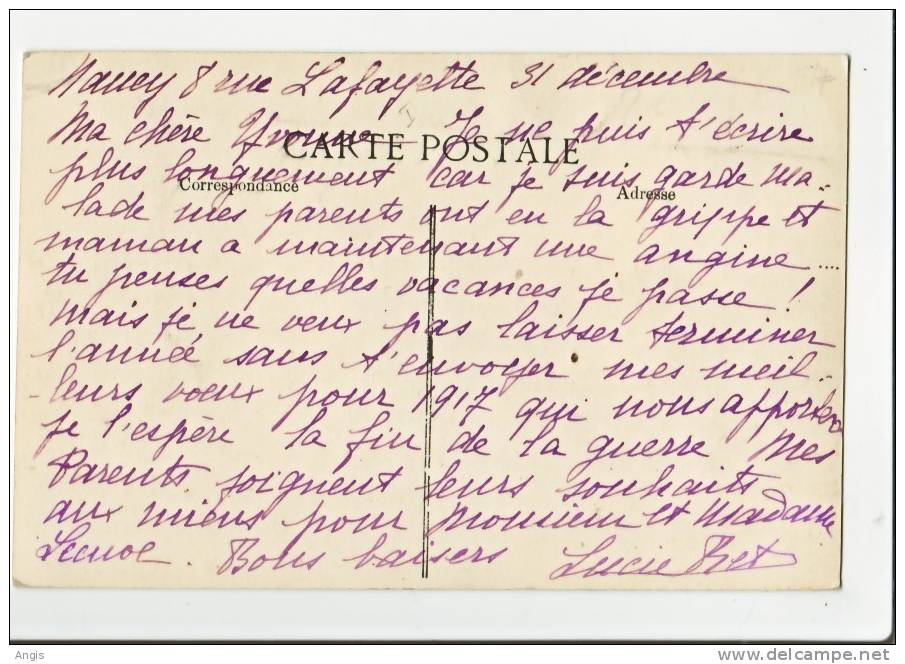 Nancy 8 rue Lafayette 31 décembre
Ma chère Yvonne - Je ne puis t'écrire
CARTE POSTALE
plus longuement car je suis garde ma-
Correspondance
Adresse
lade mes parents ont eu la grippe et
maman a maintenant une angine ....
tu penses quelles vacances je passe !
mais je ne veux pas laisser terminer
l'année sans t'envoyer mes meil-
-leurs voeux pour 1917 qui nous apportera
je l'espère la fin de la guerre Mes
Parents joignent leurs souhaits
aux miens pour Monsieur et Madame
Bons baisers Lucie
Angis
www.delcampe.net